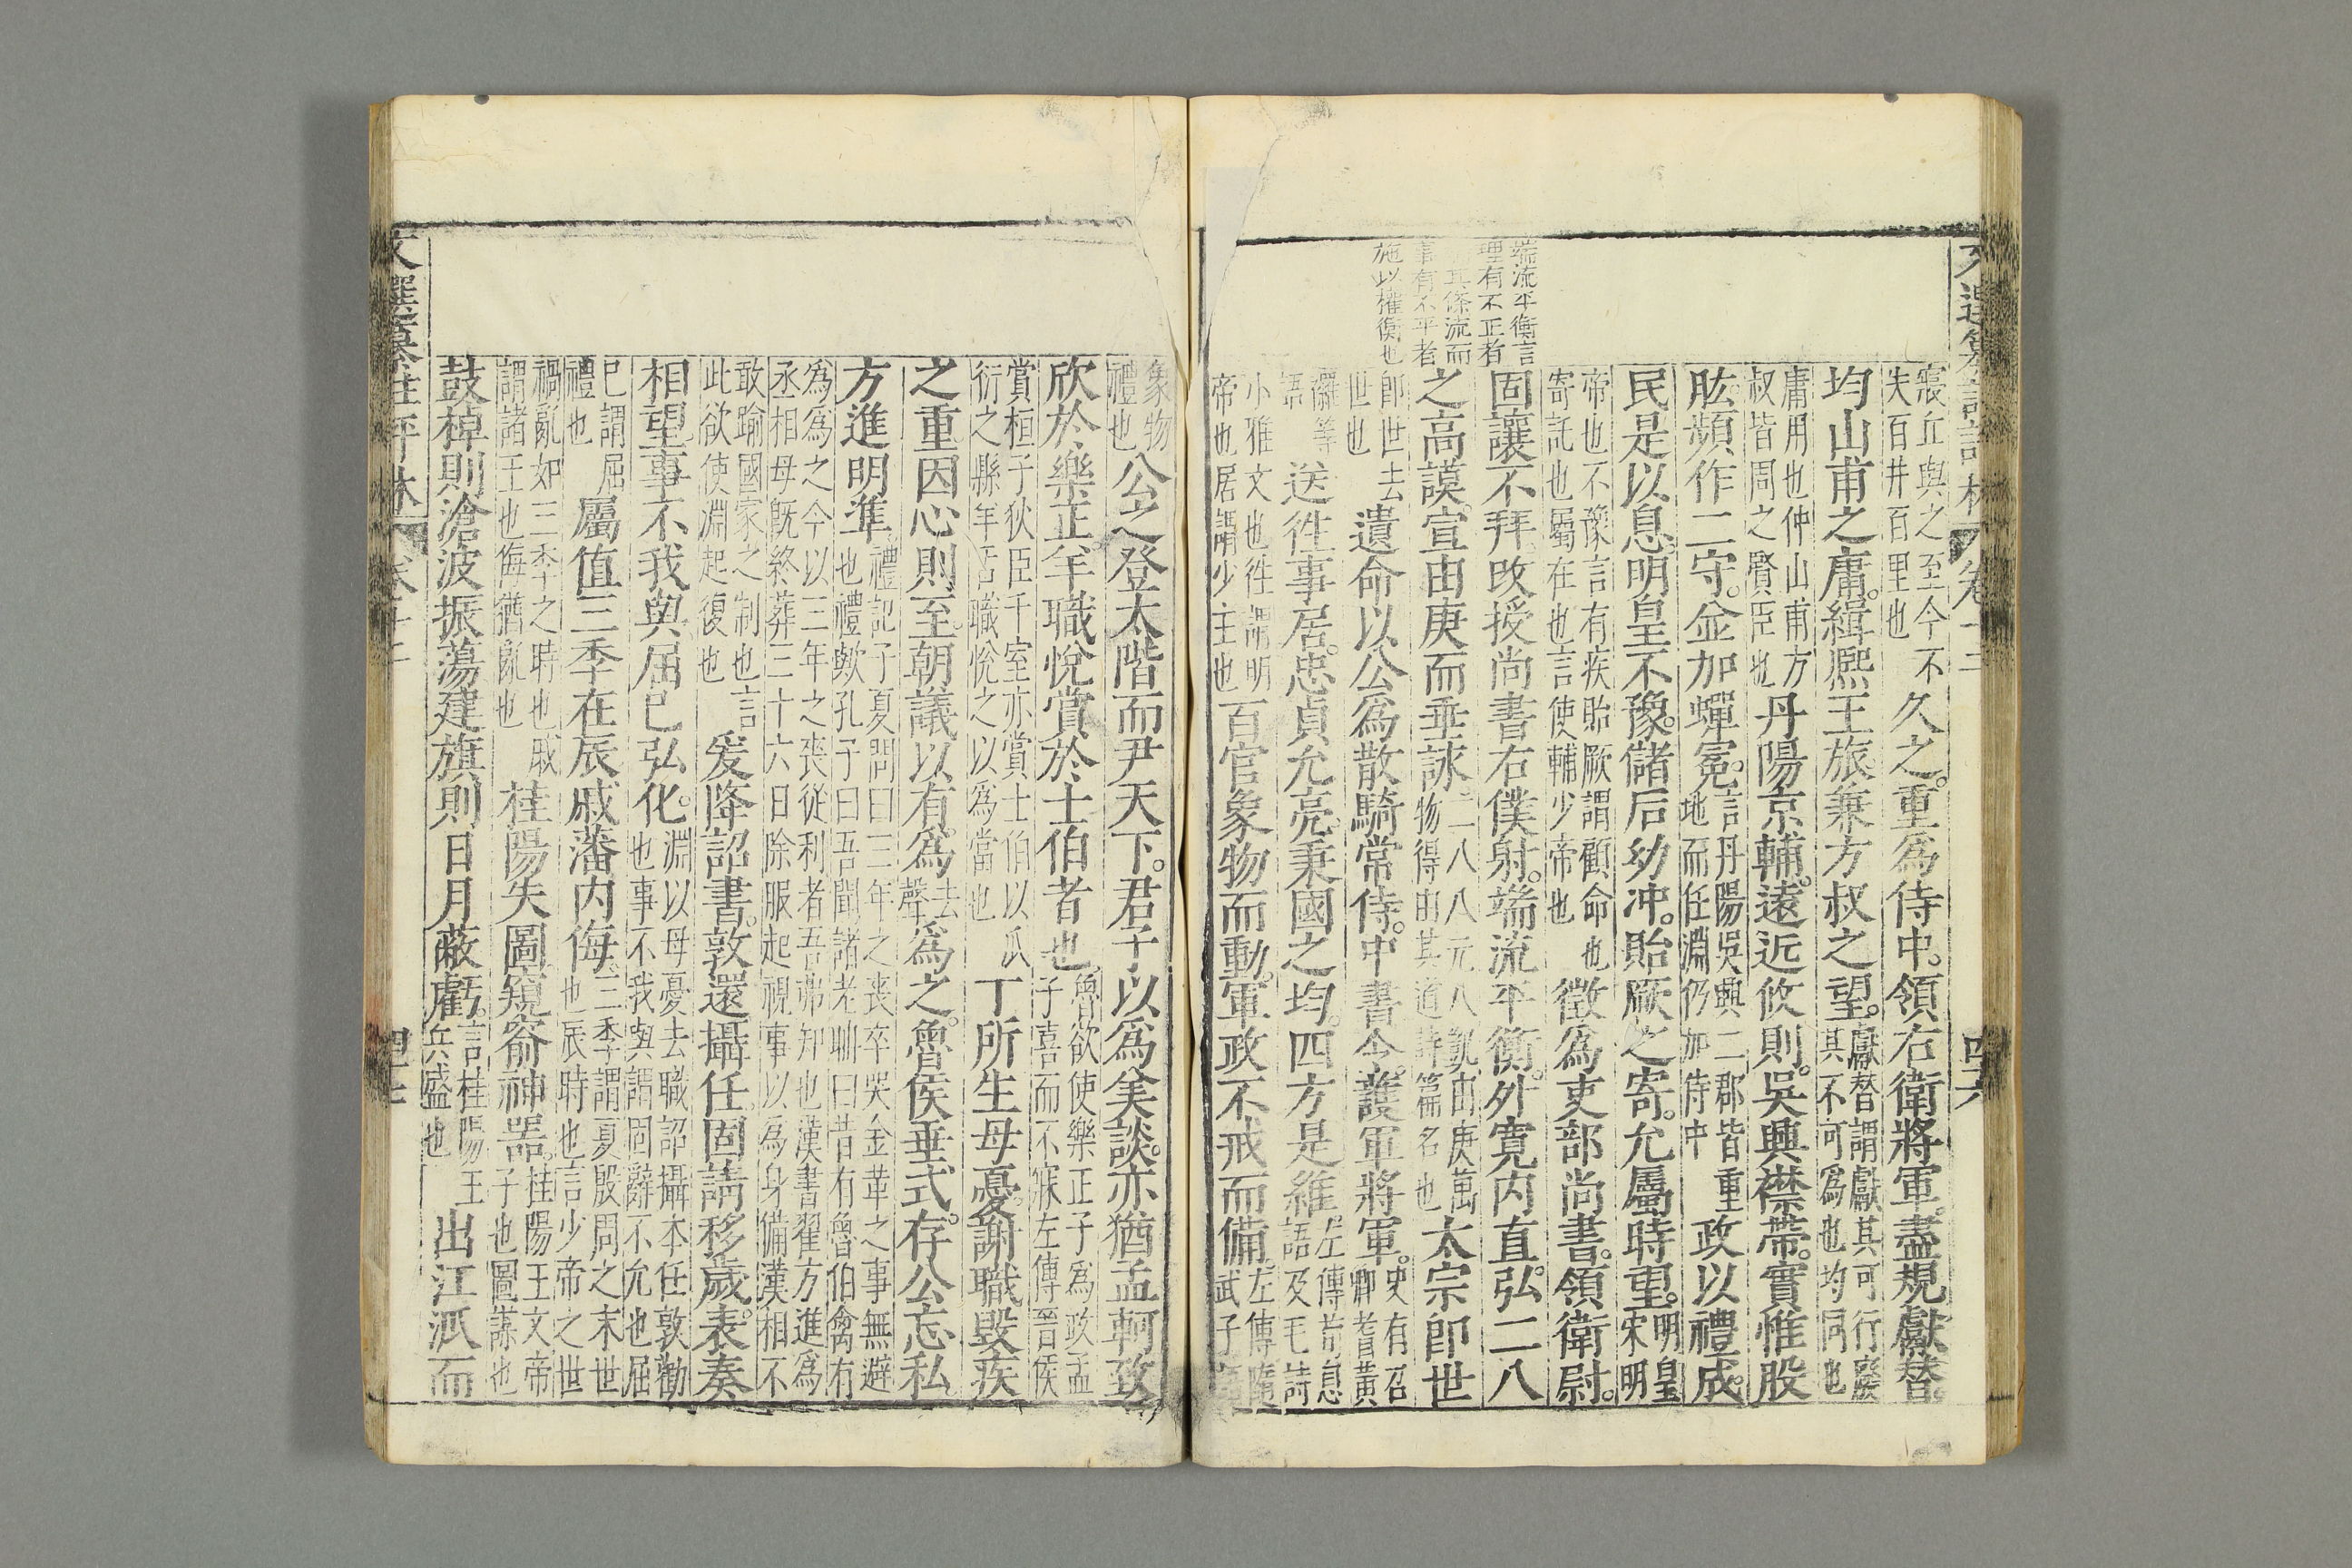 卷十二
四六
寢丘與之至今不
失百井百里也
久之。重為侍中。領右衛將軍。盡規獻替。
均山甫之庸。緝熙王旅兼方叔之望。
獻替謂獻其可行廢
其不可為也均同也
庸用也仲山甫方
叔皆周之賢臣也
丹陽京輔。遠近攸則。吳興襟帶。實惟股
肱。頻作二守。並加蟬冕。
言丹陽吳興二郡皆重
地而任淵仍加侍中
政以禮成。
民是以息。明皇不豫。儲后幼沖。貽厥之寄。允屬時望。
明皇
宋明
帝也不豫言有疾貽厥謂顧命也
寄託也屬在也言使輔少帝也
徵為吏部尚書。領衛尉。
端流平衡言
理有不正者
其條流而
事有不平者
施以權衡也
固讓不拜。改授尚書右僕射。端流平衡。外寬內直。弘二八
之高謨。宣由庚而垂詠。
二八八元八凱由庚萬
物得由其道詩篇名也
太宗即世
即世去
世也
遺命以公為散騎常侍。中書令。護軍將軍。
史有召
卿耆黃
儷等
語
送徃事居。忠貞允亮。秉國之均。四方是維。
左傳荀息
語及毛詩
小雅文也徃謂明
帝也居謂少主也
百官象物而動。軍政不戒而備。
左傳隨
武子
象物
禮也
公之登太階而尹天下。君子以為美談。亦猶孟軻致
欣於樂正。羊職悅賞於士伯者也。
魯欲使樂正子為政孟
子喜而不寐左傳晉侯
賞桓子狄臣千室亦賞士伯以瓜
衍之縣羊舌職悅之以為當也
丁所生母憂。謝職毀疾
之重。因心則至。朝議以有為
去
聲
為之。魯侯垂式。存公忘私。
方進明準。
禮記子夏問曰三年之喪卒哭金革之事無避
也禮歟孔子曰吾聞諸老聃曰昔有魯伯禽有
為為之今以三年之喪從利者吾弗知也漢書翟方進為
丞相母既終葬三十六日除服起視事以為身備漢相不
敢踰國家之制也言
此欲使淵起復也
爰降詔書。敦還攝任。固請移歲。表奏
相望。事不我與。屈己弘化。
淵以母憂去職詔攝本任敦勸
也事不我與謂固辭不允也屈
己謂屈
禮也
屬值三季在辰。戚藩內侮。
三季謂夏殷周之末世
也辰時也言少帝之世
禍亂如三季之時也戚
謂諸王也侮猶亂也
桂陽失圖。窺窬神器。
桂陽王文帝
子也圖謀也
鼓棹則滄波振蕩。建旗則日月蔽虧。
言桂陽王
兵盛也
出江派而
文選纂註評林